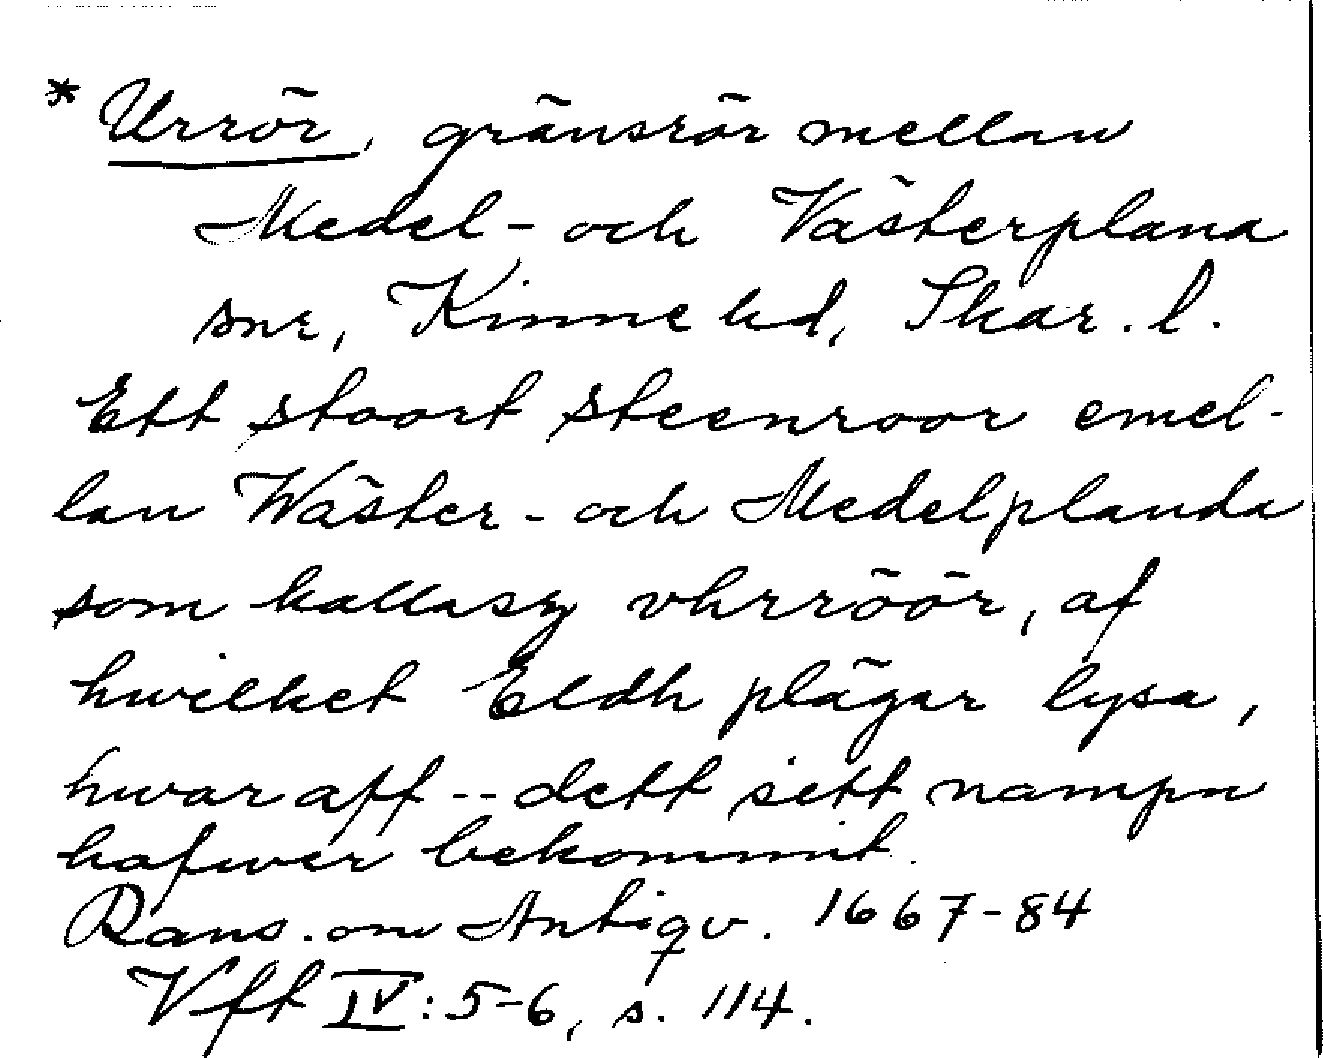 * Urrör, gränsrör mellan
Medel- och Västerplana
snr, Kinne hd, Skar. l.
Ett stoort steenroor emel-
lan Wäster- och Medelplanda
som kallasz vhrröör, af
hwilket Eldh plägar lysa,
hwaraff -- dett sitt nampn
hafwer bekommit.
Rans. om Antiqv. 1667-84
Vft IV: 5-6, s. 114.